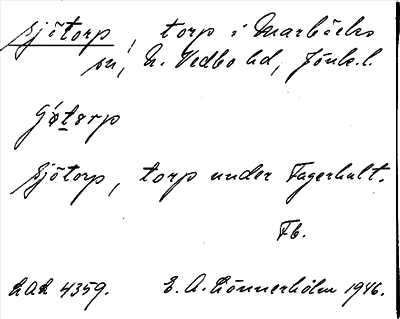 Sjötorp, torp i Marbäcks
sn, N. Vedbo hd, Jönk. l.
Sjötorp, torp under Fagerhult.
Fb.
LAL 4359. E. A. Lönnerholm 1946.